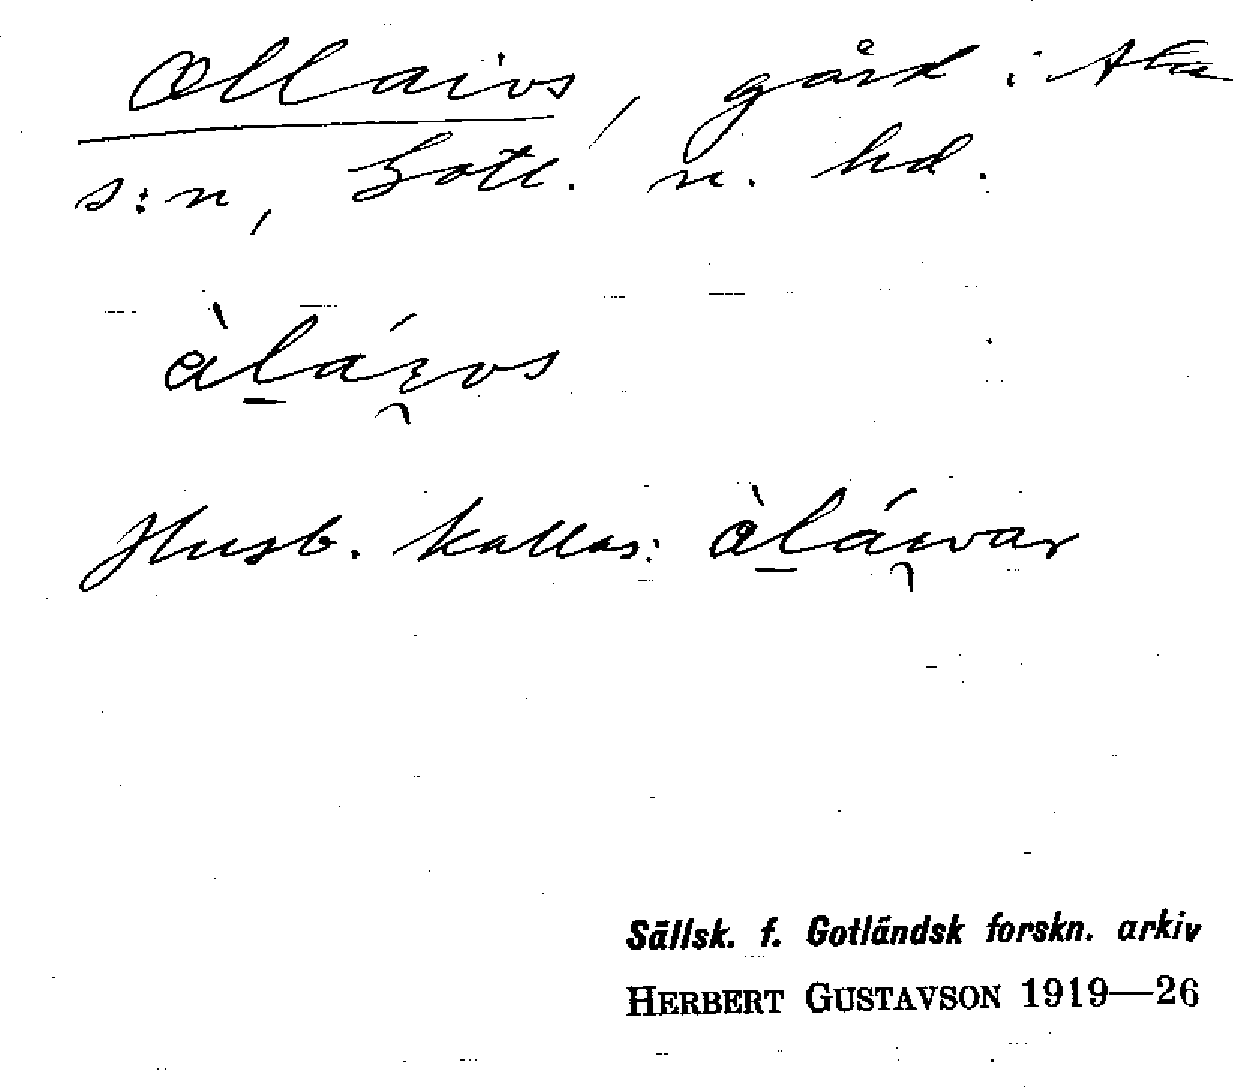 Ollaivs, gård i Ala
s:n, Gotl. n. hd.
àl̲ái̯vs
Husb. kallas: àl̲ái̯var
Sällsk. f. Gotländsk forskn. arkiv
HERBERT GUSTAVSON 1919—26